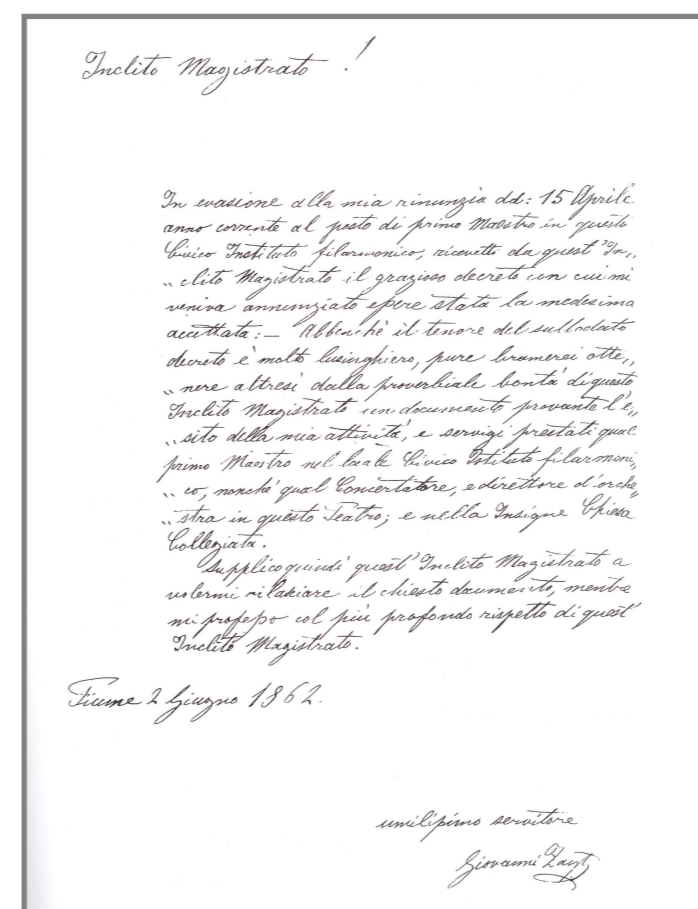 Inclito Magistrato !
In evasione alla mia rinunzia dd: 15 Aprile
anno corrente al posto di primo Maestro in questo
Civico Instituto filarmonico, ricevetti da quest' In„
„clito Magistrato il grazioso decreto con cui mi
veniva annunziato essere stata la medesima
accettata: — Abbenchè il tenore del sullodato
decreto è molto lusinghiero, pure bramerei otte„
„nere altresì dalla proverbiale bontà di questo
Inclito Magistrato un documento provante l'e„
„sito della mia attività, e servigi prestati qual
primo Maestro nel locale Civico Istituto filarmoni„
„co, nonché qual Concertatore, e direttore d'orche„
„stra in questo Teatro; e nella Insigne Chiesa
Collegiata.
Supplico quindi quest' Inclito Magistrato a
volermi rilasciare il chiesto documento, mentre
mi professo col più profondo rispetto di quest'
Inclito Magistrato.
Fiume 2 Giugno 1862.
umilissimo servitore
Giovanni Zaytz